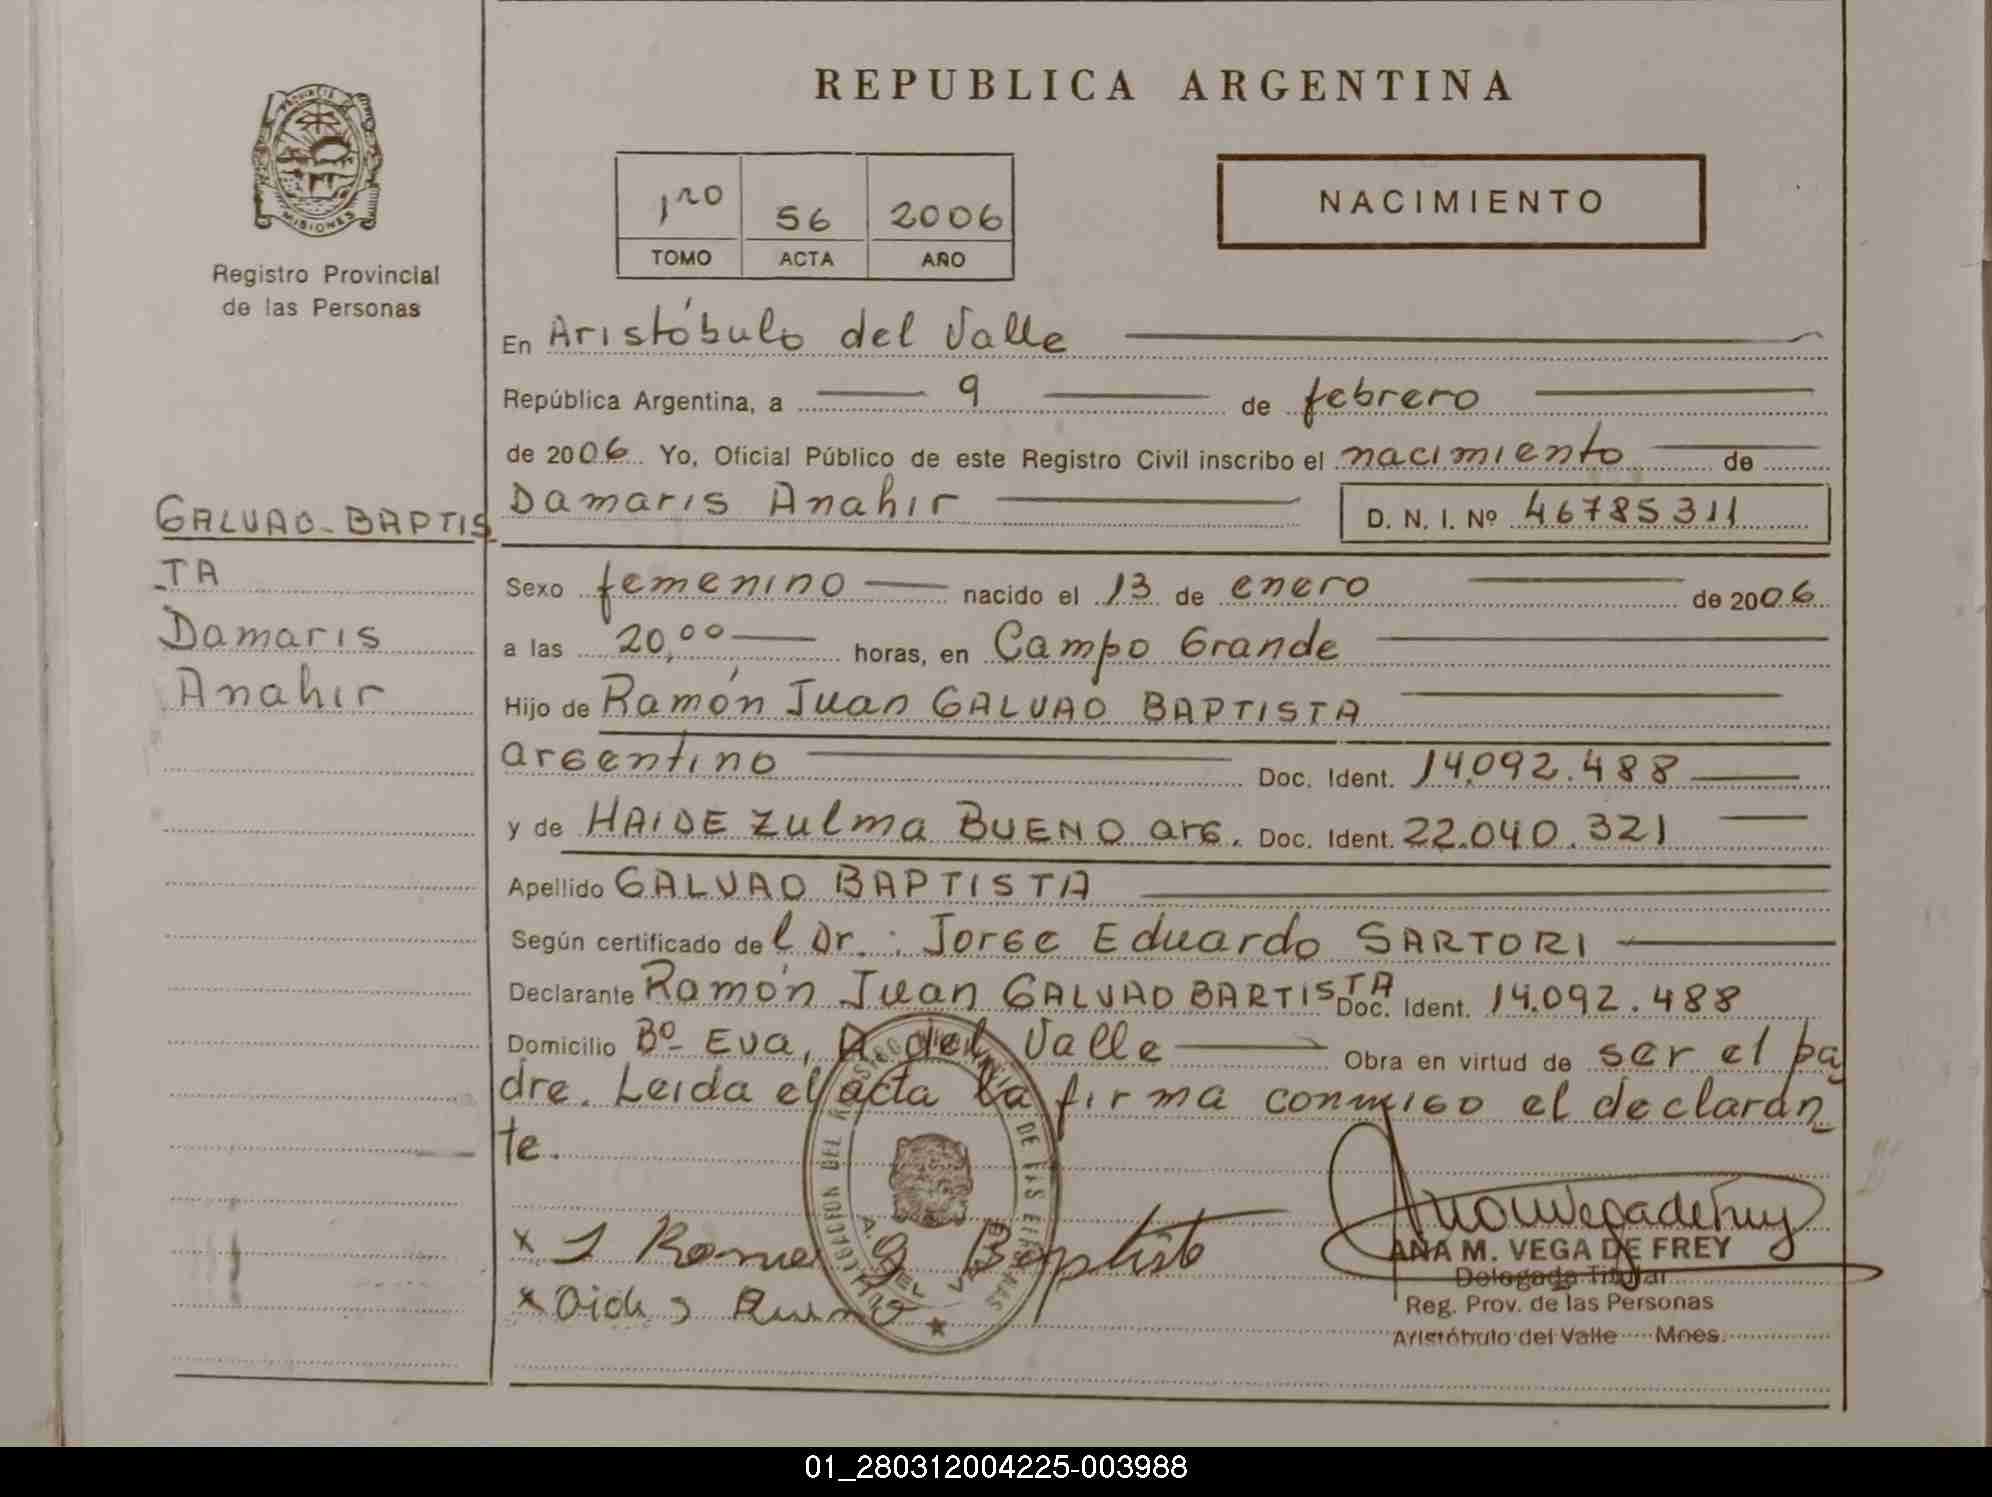 REPUBLICA ARGENTINA
PROVINCIA DE
MISIONES
Registro Provincial
de las Personas
1ro 56 2006
TOMO ACTA AÑO
NACIMIENTO
En Aristóbulo del Valle
República Argentina, a 9 de febrero
de 2006. Yo, Oficial Público de este Registro Civil inscribo el nacimiento de
Damaris Anahir D. N. I. Nº 46785311
GALVAO-BAPTIS
TA
Damaris
Anahir
Sexo femenino nacido el 13 de enero de 2006
a las 20,00 horas, en Campo Grande
Hijo de Ramón Juan GALVAO BAPTISTA
argentino Doc. Ident. 14.092.488
y de HAIDE Zulma BUENO arg. Doc. Ident. 22.040.321
Apellido GALVAO BAPTISTA
Según certificado del Dr.: Jorge Eduardo SARTORI
Declarante Ramón Juan GALVAO BARTISTA Doc. Ident. 14.092.488
Domicilio Bº Eva, A del Valle Obra en virtud de ser el pa
dre. Leida el acta la firma conmigo el declaran
te.
x J Baptista
x
ANA M. VEGA DE FREY
Delegada Titular
Reg. Prov. de las Personas
Aristóbulo del Valle Mnes.
01_280312004225-003988